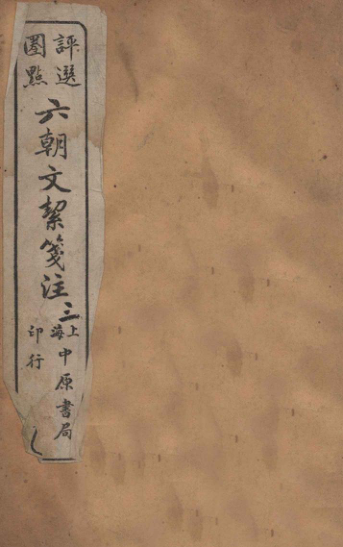 評選
圈點
六朝文絜箋注
三
上海
中原書局
印行